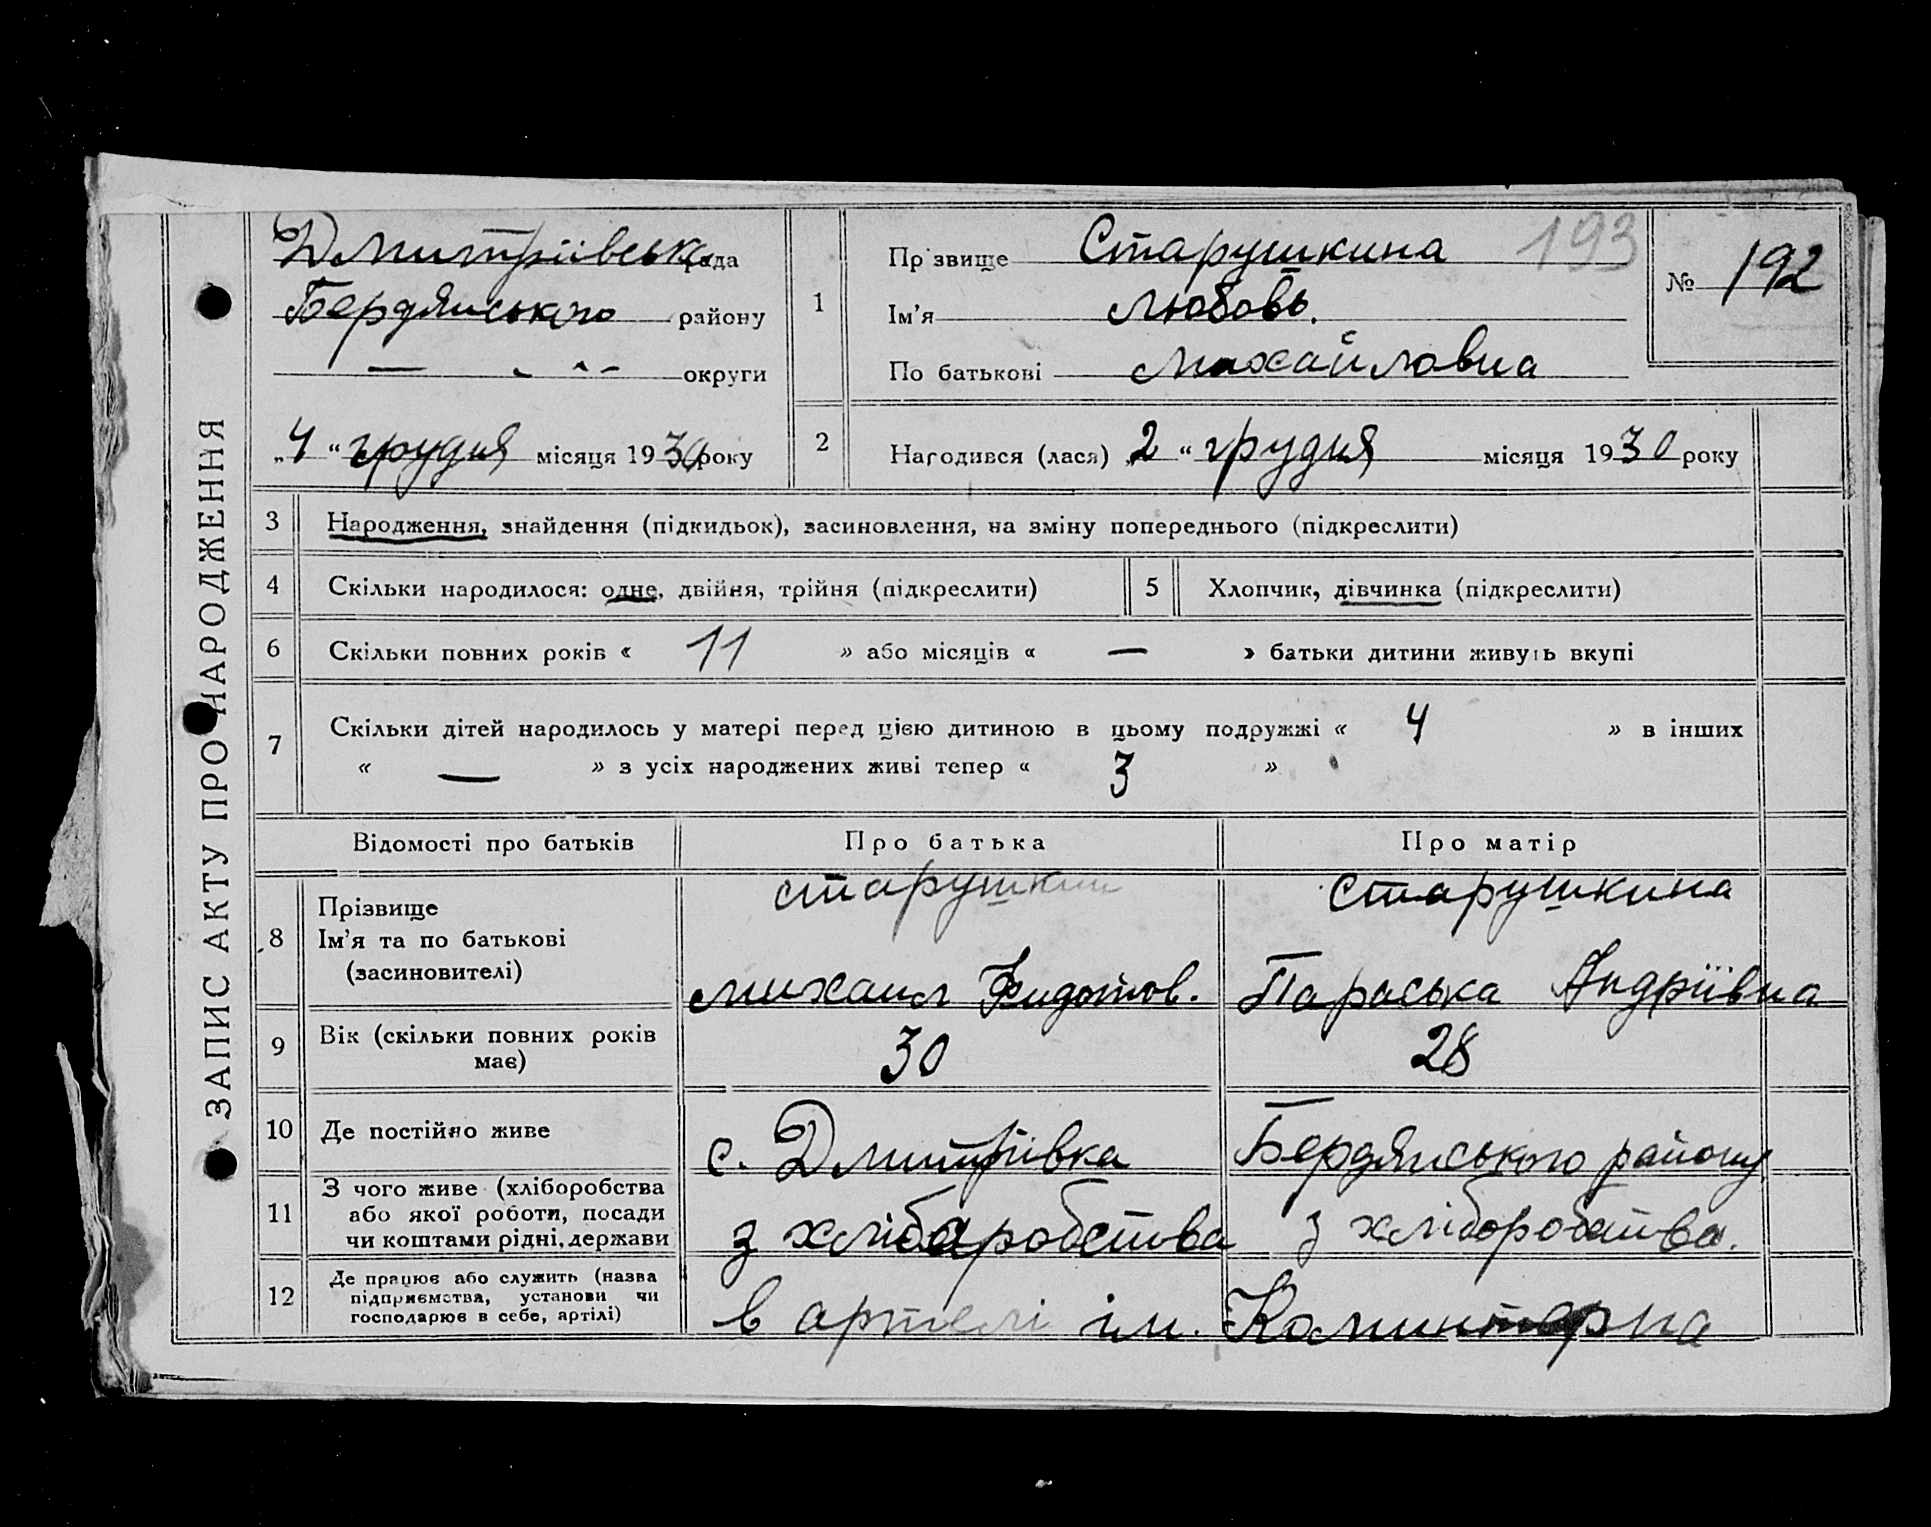 ЗАПИС АКТУ ПРО НАРОДЖЕННЯ
Дмитріівська рада
Бердянського району
— - - - округи
„4“ грудня місяця 1930 року
1
Прізвище Старушкина
193
Ім’я Любовь.
По батькові Михайловна
№ 192
2
Народився (лася) „2“ грудня місяця 1930 року
3 Народження, знайдення (підкидьок), засиновлення, на зміну попереднього (підкреслити)
4 Скільки народилося: одне, двійня, трійня (підкреслити)
5 Хлопчик, дівчинка (підкреслити)
6 Скільки повних років « 11 » або місяців « — » батьки дитини живуть вкупі
7 Скільки дітей народилось у матері перед цією дитиною в цьому подружжі « 4 » в інших
« — » з усіх народжених живі тепер « 3 »
Відомості про батьків Про батька Про матір
8
Прізвище
Ім’я та по батькові
(засиновителі)
Старушкин
Михаил Фидотов.
Старушкина
Параська Андріівна
9
Вік (скільки повних років
має)
30
28
10 Де постійно живе
с. Дмитріівка
Бердянського району
11
З чого живе (хліборобства
або якої роботи, посади
чи коштами рідні, держави
з хлібаробства
з хліборобства.
12
Де працює або служить (назва
підприємства, установи чи
господарює в себе, артілі)
в артелі ім. Коминтерна